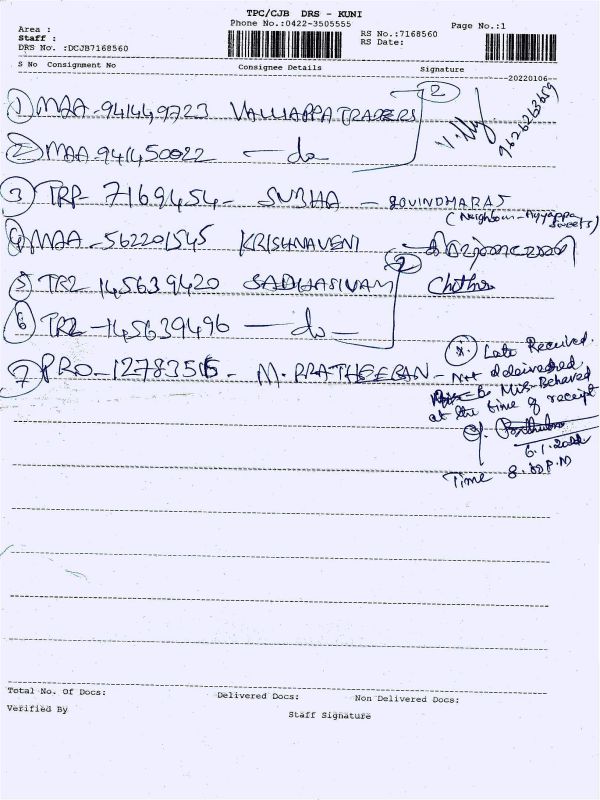 TPC/CJB DRS - KUNI
Phone No.:0422-3505555
Page No.:1
Area :
Staff :
DRS No. :DCJB7168560
RS No.:7168560
RS Date:
S No Consignment No Consignee Details Signature
20220106
① MAA-941449723 VALLIAPPA TRADERS ②
9626263059
② MAA-941450022 — do
③ TRP- 7169454- SUBHA - GOVINDHARAJ
(Neighbour - Ayyappa Sweets)
④ MAA -562201545 KRISHNAVENI
⑤ TRZ -145639420 SADHASIVAM ② Chithra
⑥ TRZ -145639496 — do —
⑦ PRO -12783516 - M. PRATHEEBAN - Not delivered,
Late Received.
Mis-Behaved
at the time of receipt
6.1.2022
Time 8.30 P.M
Total No. Of Docs: Delivered Docs: Non Delivered Docs:
Verified By Staff Signature